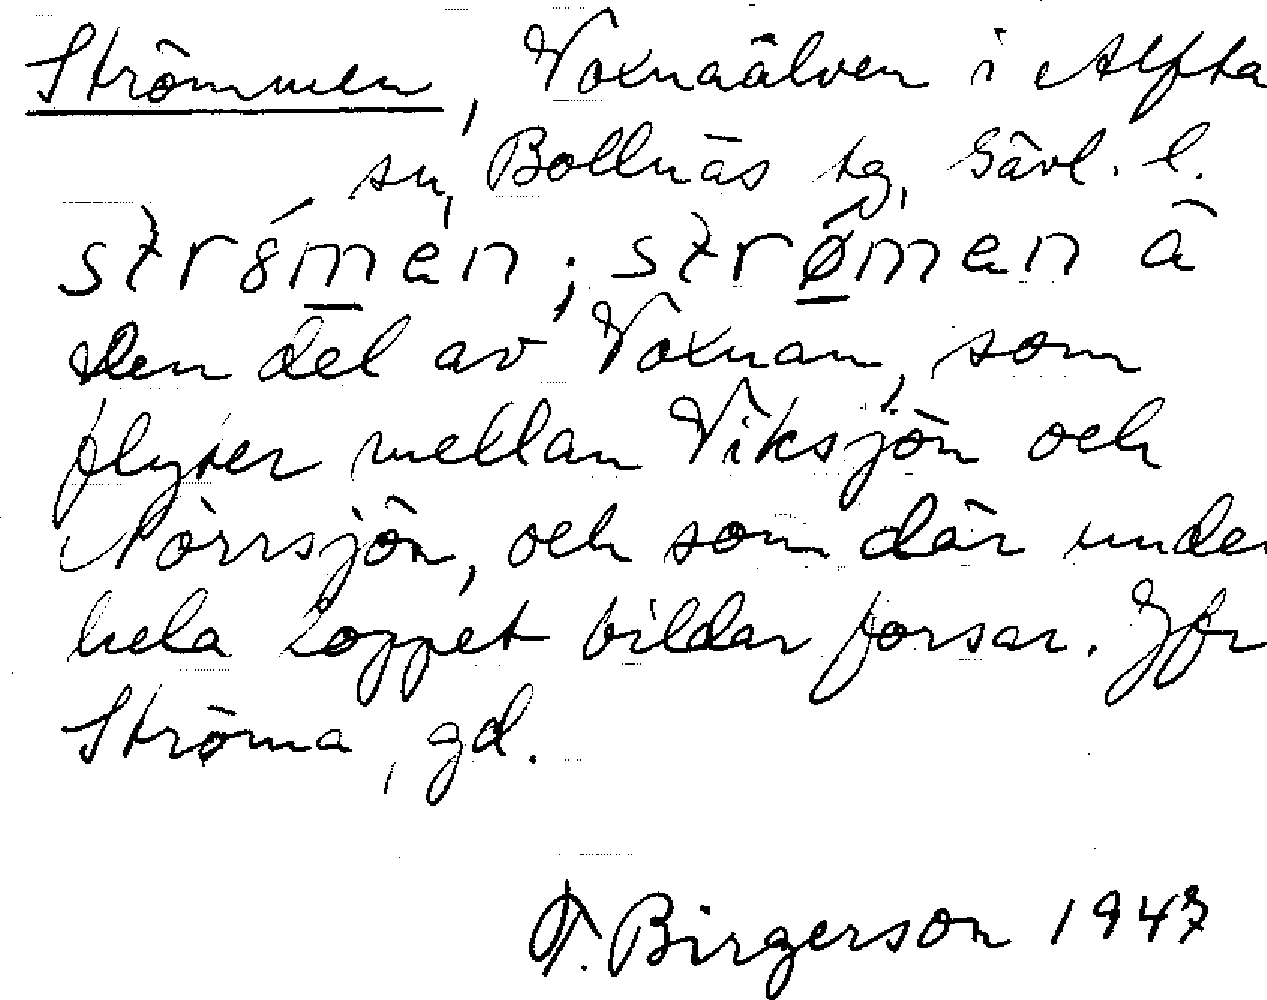 Strömmen, Voxnaälven i Alfta
sn, Bollnäs tg, Gävl. l.
den del av Voxnan, som
flyter mellan Viksjön och
Norrsjön, och som där under
hela loppet bildar forsar. Jfr
Ströma, gd.
F. Birgerson 1947